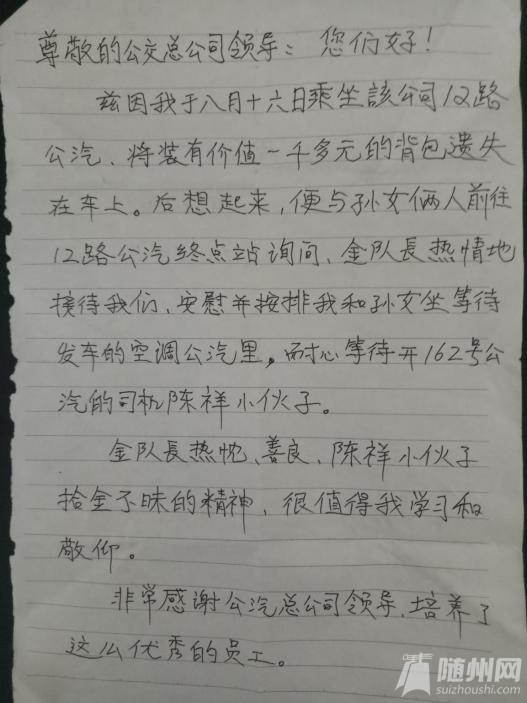 尊敬的公交总公司领导：您们好！
兹因我于八月十六日乘坐該公司12路
公汽、将装有价值一千多元的背包遗失
在车上。后想起来，便与孙女俩人前往
12路公汽终点站询问、金队長热情地
接待我们、安慰并按排我和孙女坐等待
发车的空调公汽里，耐心等待开162号公
汽的司机陈祥小伙子。
金队長热忱、善良、陈祥小伙子
拾金不昧的精神，很值得我学习和
敬仰。
非常感谢公汽总公司领导、培养了
这么优秀的员工。
随州网
suizhoushi.com